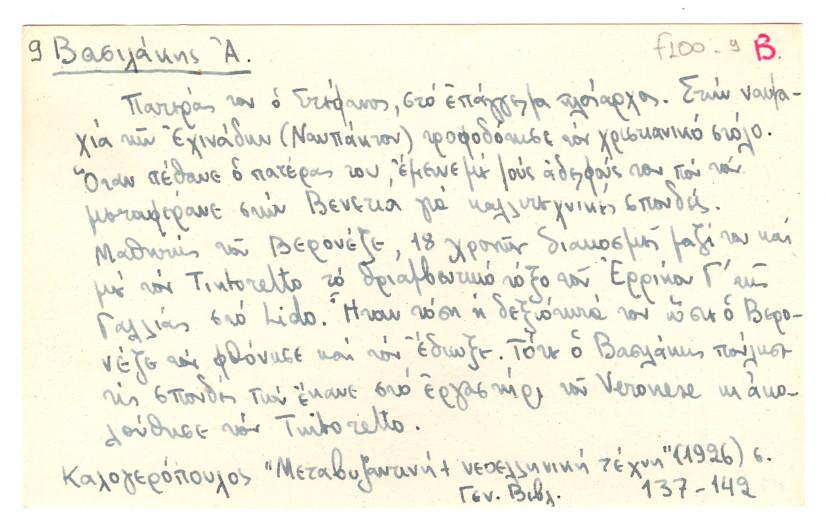 9 Βασιλάκης Ἀ. f100-9 Β.
Πατέρας του ὁ Στέφανος, στό ἐπάγγελμα πλοίαρχος. Στήν ναυμα-
χία τῶν Ἐχινάδων (Ναυπάκτου) τροφοδότησε τόν χριστιανικό στόλο.
Ὅταν πέθανε ὁ πατέρας του, ἔμεινε μέ τούς ἀδελφούς του πού τόν
μεταφέρανε στήν Βενετία γιά καλλιτεχνικές σπουδές.
Μαθητής τοῦ Βερονέζε, 18 χρονῶν διακοσμεῖ μαζί του καί
μέ τόν Tintoretto τό θριαμβευτικό τόξο τοῦ Ἑρρίκου Γ' τῆς
Γαλλίας στό Lido. Ἦταν τόση ἡ δεξιότητά του ὥστε ὁ Βερο-
νέζε τόν φθόνησε καί τόν ἔδιωξε. Τότε ὁ Βασιλάκης πούλησε
τίς σπουδές πού ἔκανε στό ἐργαστήρι τοῦ Veronese κι ἀκο-
λούθησε τόν Tintoretto.
Καλογερόπουλος "Μεταβυζαντινή + νεοελληνική τέχνη" (1926) σ.
Γεν. Βιβλ. 137-142